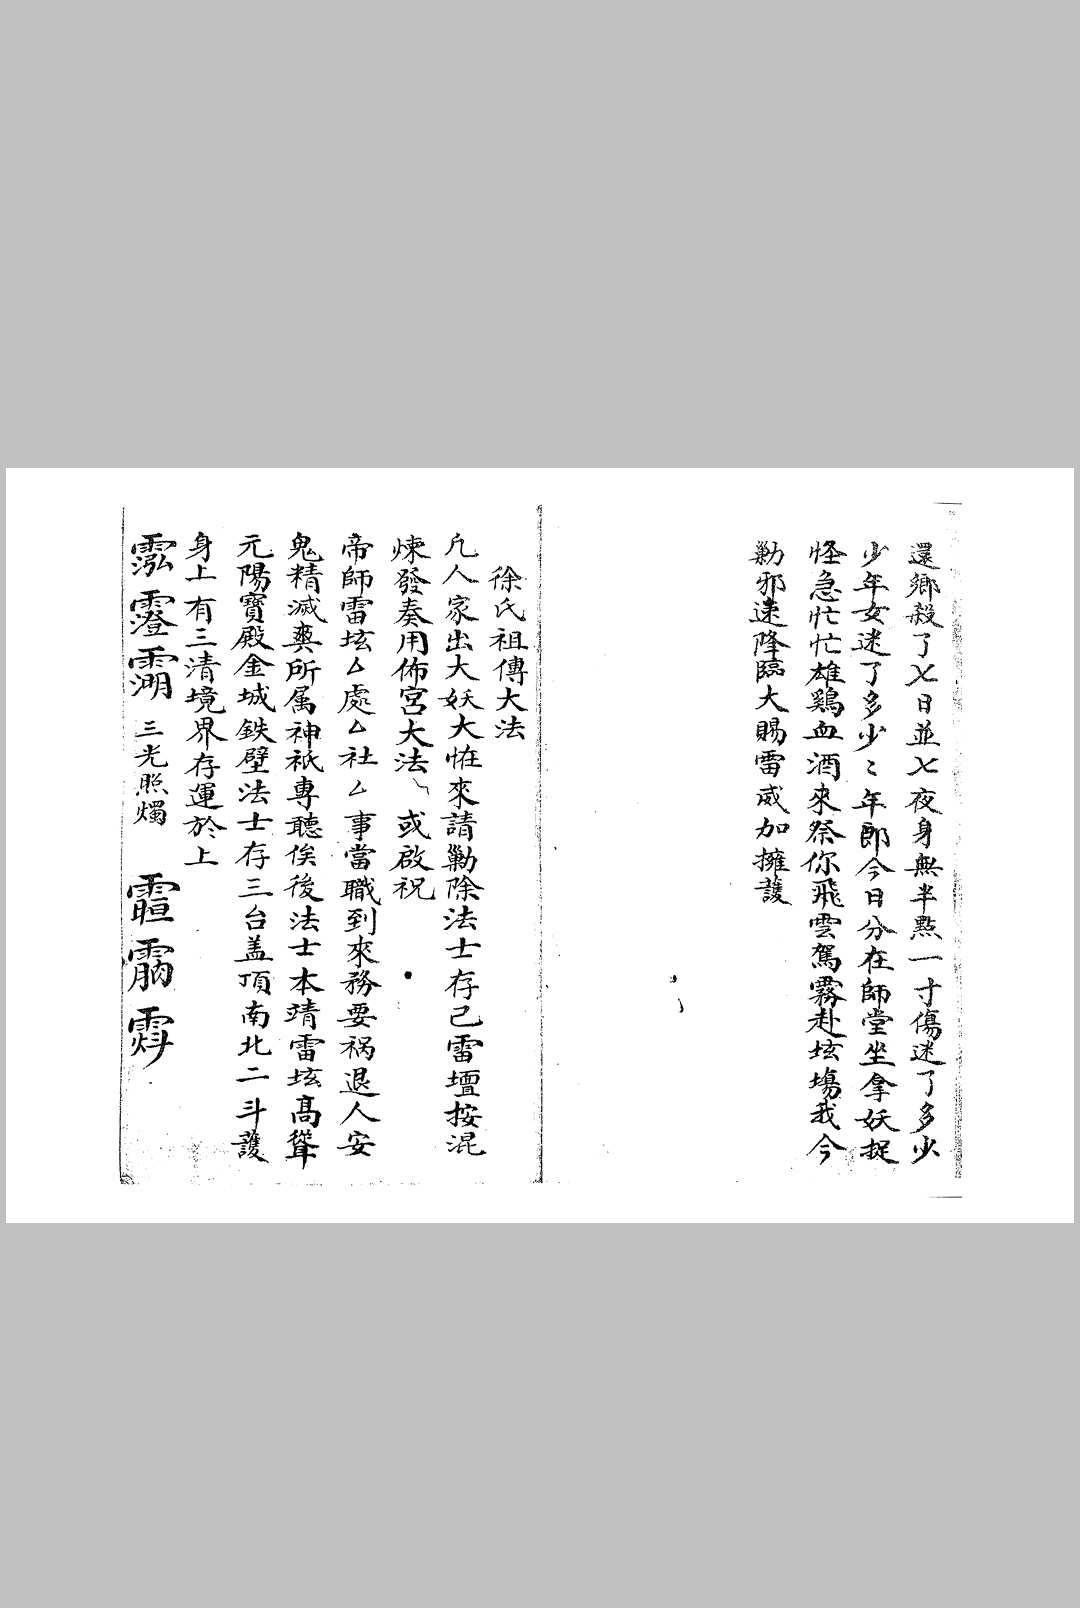 還鄉殺了七日並七夜身無半點一寸傷迷了多少
少年女迷了多少〻年郎今日分在師堂坐拿妖捉
怪急忙忙雄鷄血酒來祭你飛雲駕霧赴垓塲我今
勦邪速降臨大賜雷威加擁護
徐氏祖傳大法
凢人家出大妖大恠來請勦除法士存己雷壇按混
煉發奏用佈宮大法 或啟祝
帝師雷垓厶處厶社厶事當職到來務要祸退人安
鬼精滅喪所属神祇專聽俟後法士本靖雷垓高聳
元陽寶殿金城鉄壁法士存三台盖頂南北二斗護
身上有三清境界存運於上
三光照燭